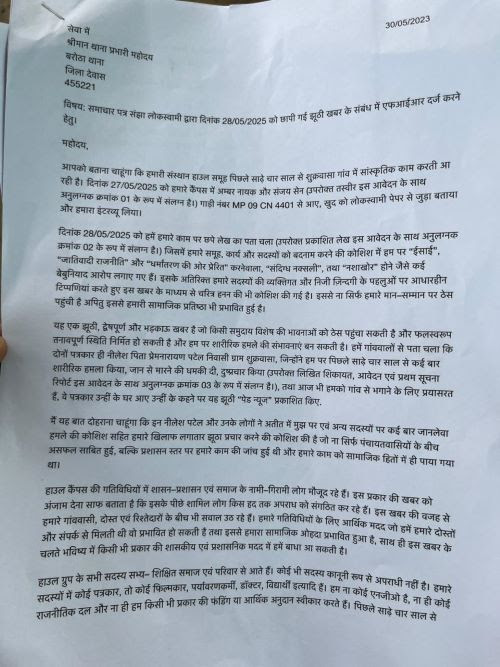 30/05/2023
सेवा में
श्रीमान थाना प्रभारी महोदय
बरोठा थाना
जिला देवास
455221
विषय: समाचार पत्र संझा लोकस्वामी द्वारा दिनांक 28/05/2025 को छापी गई झूठी खबर के संबंध में एफआईआर दर्ज करने
हेतु।
महोदय,
आपको बताना चाहूंगा कि हमारी संस्थान हाउल समूह पिछले साढ़े चार साल से शुक्रवासा गांव में सांस्कृतिक काम करती आ
रही है। दिनांक 27/05/2025 को हमारे कैंपस में अम्बर नायक और संजय सेन (उपरोक्त तस्वीर इस आवेदन के साथ
अनुलग्नक क्रमांक 01 के रूप में संलग्न है।) गाड़ी नंबर MP 09 CN 4401 से आए, खुद को लोकस्वामी पेपर से जुड़ा बताया
और हमारा इंटरव्यू लिया।
दिनांक 28/05/2025 को हमें हमारे काम पर छपे लेख का पता चला (उपरोक्त प्रकाशित लेख इस आवेदन के साथ अनुलग्नक
क्रमांक 02 के रूप में संलग्न है।) जिसमें हमारे समूह, कार्य और सदस्यों को बदनाम करने की कोशिश में हम पर “ईसाई”,
“जातिवादी राजनीति” और “धर्मांतरण की ओर प्रेरित” करनेवाला, “संदिग्ध नक्सली”, तथा “नशाखोर” होने जैसे कई
बेबुनियाद आरोप लगाए गए हैं। इसके अतिरिक्त हमारे सदस्यों की व्यक्तिगत और निजी ज़िन्दगी के पहलुओं पर आधारहीन
टिप्पणियां करते हुए इस खबर के माध्यम से चरित्र हनन की भी कोशिश की गई है। इससे ना सिर्फ हमारे मान–सम्मान पर ठेस
पहुंची है अपितु इससे हमारी सामाजिक प्रतिष्ठा भी प्रभावित हुई है।
यह एक झूठी, द्वेषपूर्ण और भड़काऊ खबर है जो किसी समुदाय विशेष की भावनाओं को ठेस पहुंचा सकती है और फलस्वरूप
तनावपूर्ण स्थिति निर्मित हो सकती है और हम पर शारीरिक हमले की संभावनाएं बन सकती हैं। हमें गांववालों से पता चला कि
दोनों पत्रकार ही नीलेश पिता प्रेमनारायण पटेल निवासी ग्राम शुक्रवासा, जिन्होंने हम पर पिछले साढ़े चार साल से कई बार
शारीरिक हमला किया, जान से मारने की धमकी दी, दुष्प्रचार किया (उपरोक्त लिखित शिकायत, आवेदन एवं प्रथम सूचना
रिपोर्ट इस आवेदन के साथ अनुलग्नक क्रमांक 03 के रूप में संलग्न है।), तथा आज भी हमको गांव से भगाने के लिए प्रयासरत
हैं, वे पत्रकार उन्हीं के घर आए उन्हीं के कहने पर यह झूठी “पेड न्यूज” प्रकाशित किए.
मैं यह बात दोहराना चाहूंगा कि इन नीलेश पटेल और उनके लोगों ने अतीत में मुझ पर एवं अन्य सदस्यों पर कई बार जानलेवा
हमले की कोशिश सहित हमारे खिलाफ लगातार झूठा प्रचार करने की कोशिश की है जो ना सिर्फ पंचायतवासियों के बीच
असफल साबित हुई, बल्कि प्रशासन स्तर पर हमारे काम की जांच हुई थी और हमारे काम को सामाजिक हितों में ही पाया गया
था।
हाउल कैंपस की गतिविधियों में शासन–प्रशासन एवं समाज के नामी–गिरामी लोग मौजूद रहे हैं। इस प्रकार की खबर को
अंजाम देना साफ बताता है कि इसके पीछे शामिल लोग किस हद तक अपराध को संगठित कर रहे हैं। इस खबर की वजह से
हमारे गांववासी, दोस्त एवं रिश्तेदारों के बीच भी सवाल उठ रहे हैं। हमारे गतिविधियों के लिए आर्थिक मदद जो हमें हमारे दोस्तों
और संपर्क से मिलती थी वो प्रभावित हो सकती है तथा इससे हमारा सामाजिक ओहदा प्रभावित हुआ है, साथ ही इस खबर के
चलते भविष्य में किसी भी प्रकार की शासकीय एवं प्रशासनिक मदद में हमें बाधा आ सकती है।
हाउल ग्रुप के सभी सदस्य सभ्य– शिक्षित समाज एवं परिवार से आते हैं। कोई भी सदस्य कानूनी रूप से अपराधी नहीं है। हमारे
सदस्यों में कोई पत्रकार, तो कोई फिल्मकार, पर्यावरणकर्मी, डॉक्टर, विद्यार्थी इत्यादि हैं। हम ना कोई एनजीओ है, ना ही कोई
राजनीतिक दल और ना ही हम किसी भी प्रकार की फंडिंग या आर्थिक अनुदान स्वीकार करते हैं। पिछले साढ़े चार साल से